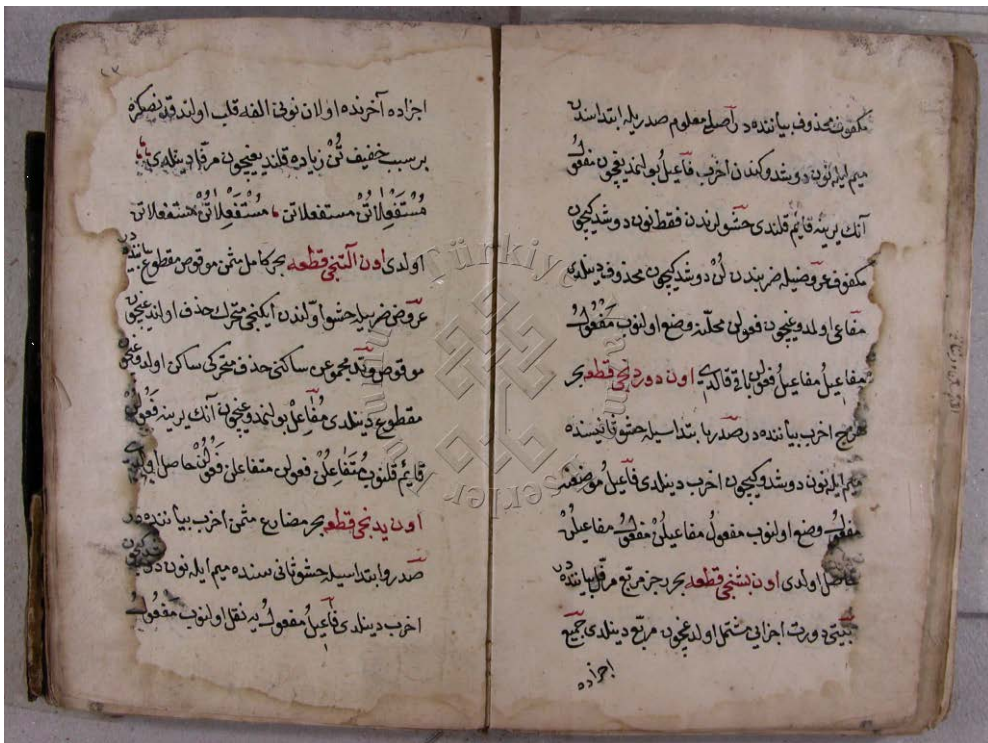 مكفوف محذوف بياننده در اصلى معلوم صدريله ابتداسندن
ميم ايله نون دوشدوكندن اخرب فاعيلُ بولنمديغيچون مفعولُ
آنك يرينه قائم قلندى حشولرندن فقط نون دوشديكيچون
مكفوف عروضيله ضربندن لُنْ دوشديكيچون محذوف دينلدى
مفاعى اولدوغيچون فعولن محلنه وضع اولنوب مَفْعُولُ
مفاعيلُ مفاعيلُ فعولن باقى قالدى اون دوردنجى قطعه بحر
هزج اخرب بياننده در صدر با ابتداسيله حشو ثانيسنده
ميم ايله نون دوشدوكيچون اخرب دينلدى فاعيلُ موضعنه
مفعولُ وضع اولنوب مفعولُ مفاعيلُنْ مفعولُ مفاعيلُنْ
حاصل اولدى اون بشنجى قطعه بحر رجز مربّع مرفّل بياننده در
بيتى دورت اجزايى مشتمل اولدغيچون مربّع دينلدى جميع
اجزاده
٤٣
اجزاده آخرنده اولان نونى الفه قلب اولندقدنصكره
بر سبب خفيف تُنْ زياده قلنديغيچون مرفّل دينلدى
مُسْتَفْعِلَاتُنْ مستفعلاتن مُسْتَفْعِلَاتُنْ مستفعلاتن
اولدى اون آلتنجى قطعه بحر كامل مثمن موقوص مقطوع بياننده در
عروض ضربيله حشو اوّلندن ايكنجى متحرك حذف اولندغيچون
موقوص وتد مجموعن ساكنى حذف متحركى ساكن اولدوغيچون
مقطوع دينلدى مُفَاعِلْ بولنمدوغيچون آنك يرينه فَعُولُنْ
قائم قلنوب مُتَفَاعِلُنْ فعولن متفاعلن فَعُولُنْ حاصل اولدى
اون يدنجى قطعه بحر مضارع مثمن اخرب بياننده در
صدر و ابتداسيله حشو ثانى سنده ميم ايله نون دوشديكيچون
اخرب دينلدى فاعيلُ مفعولُ يه نقل اولنوب مفعولُ
Türkiye